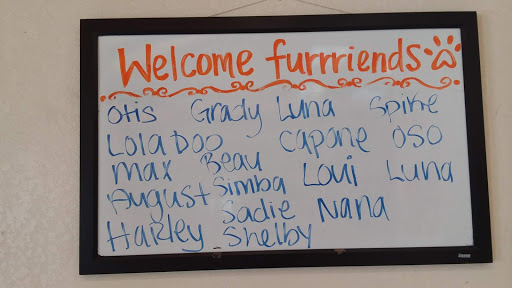 Welcome furrriends
Otis Grady Luna Spike
Lola Doo Capone Oso
Max Beau Loui Luna
August Simba
Sadie Nana
Harley Shelby